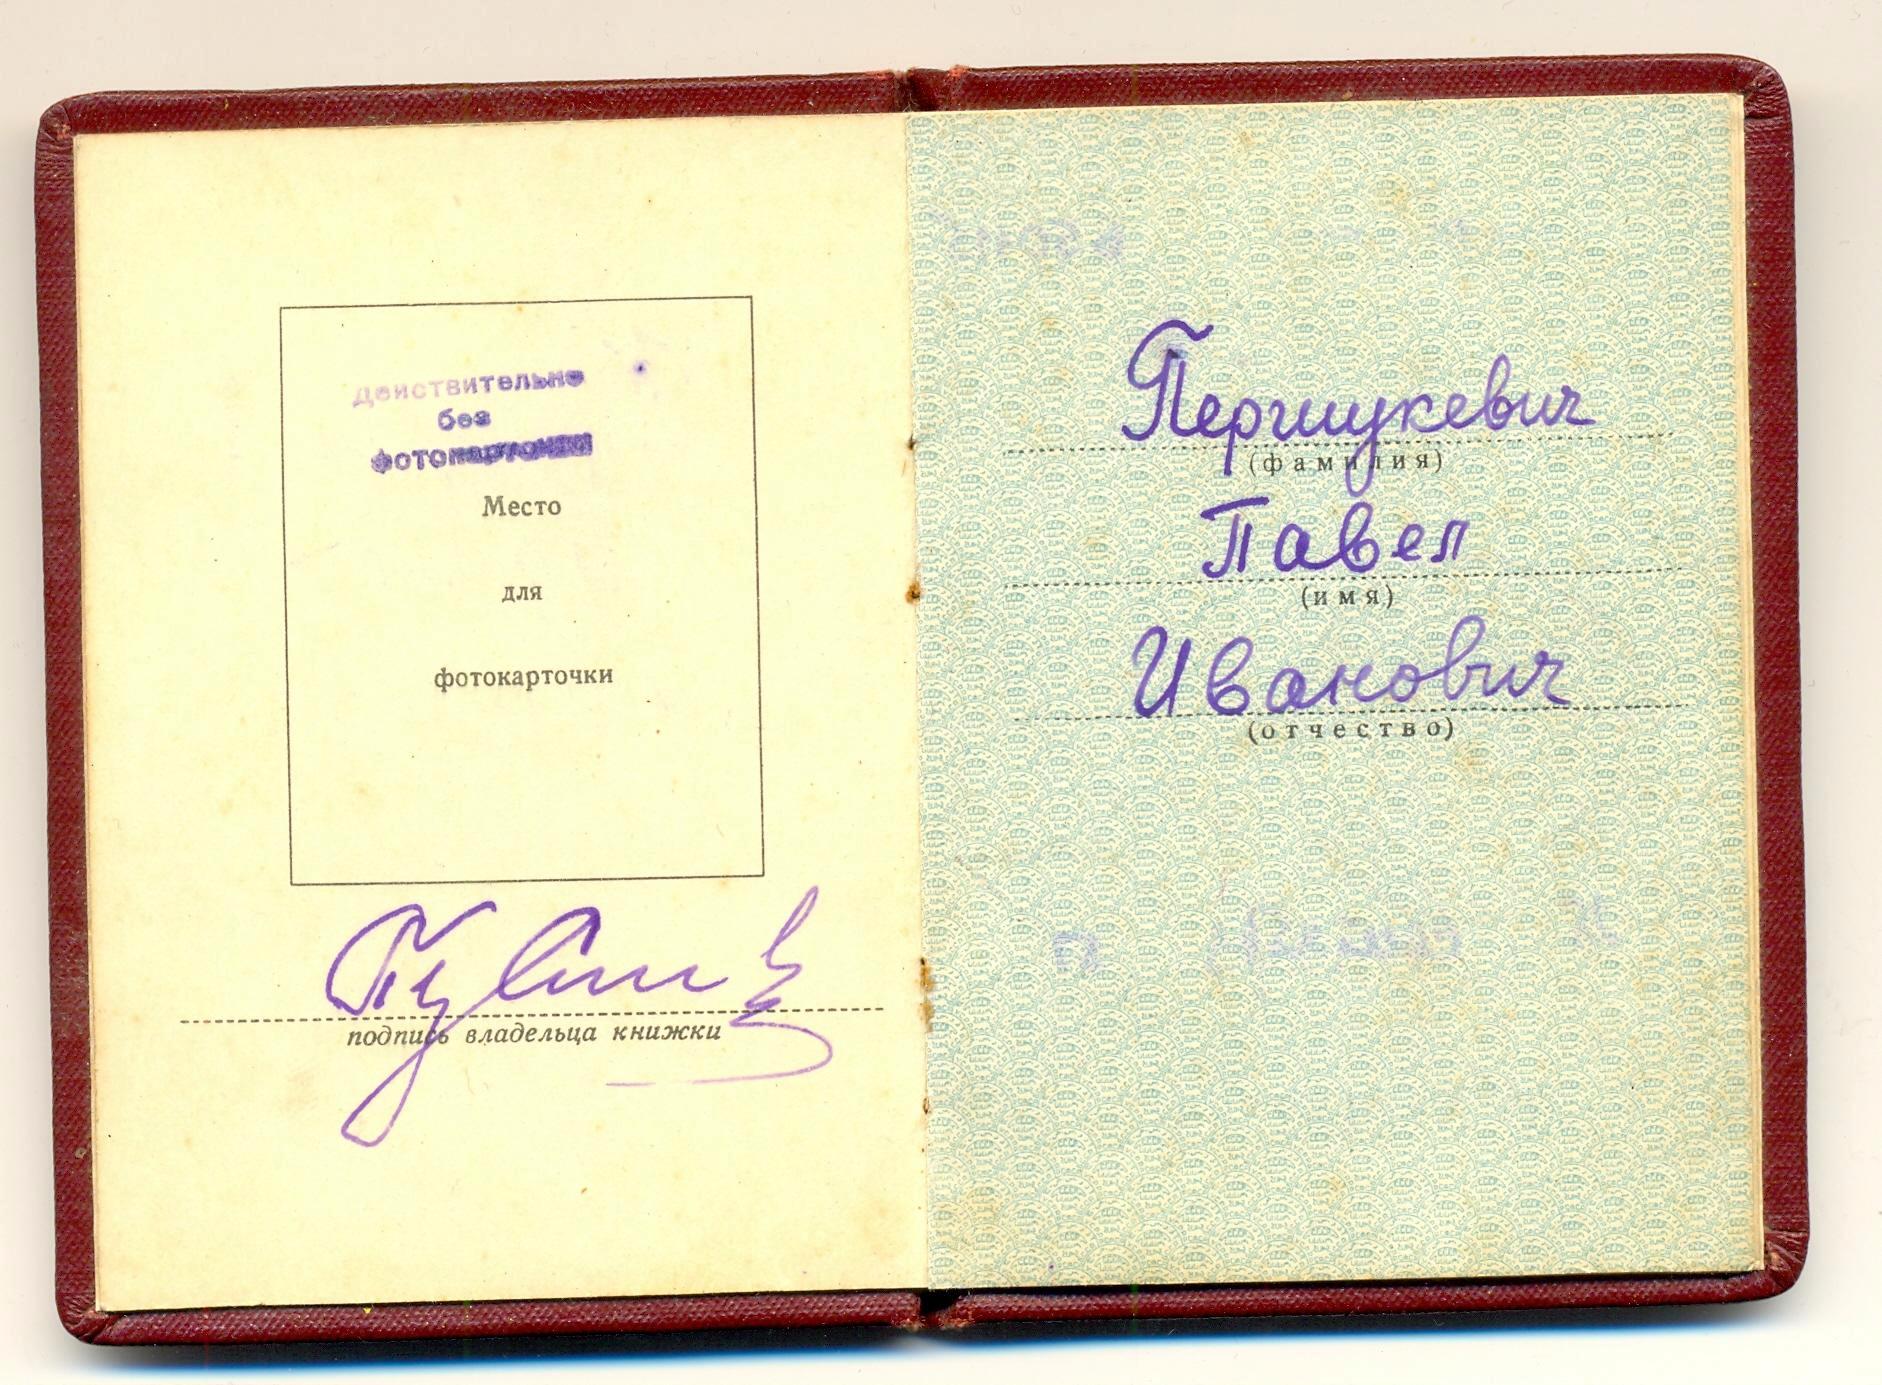 Действительно
без
фотокарточки
Место
для
фотокарточки
подпись владельца книжки
Першукевич
(фамилия)
Павел
(имя)
Иванович
(отчество)